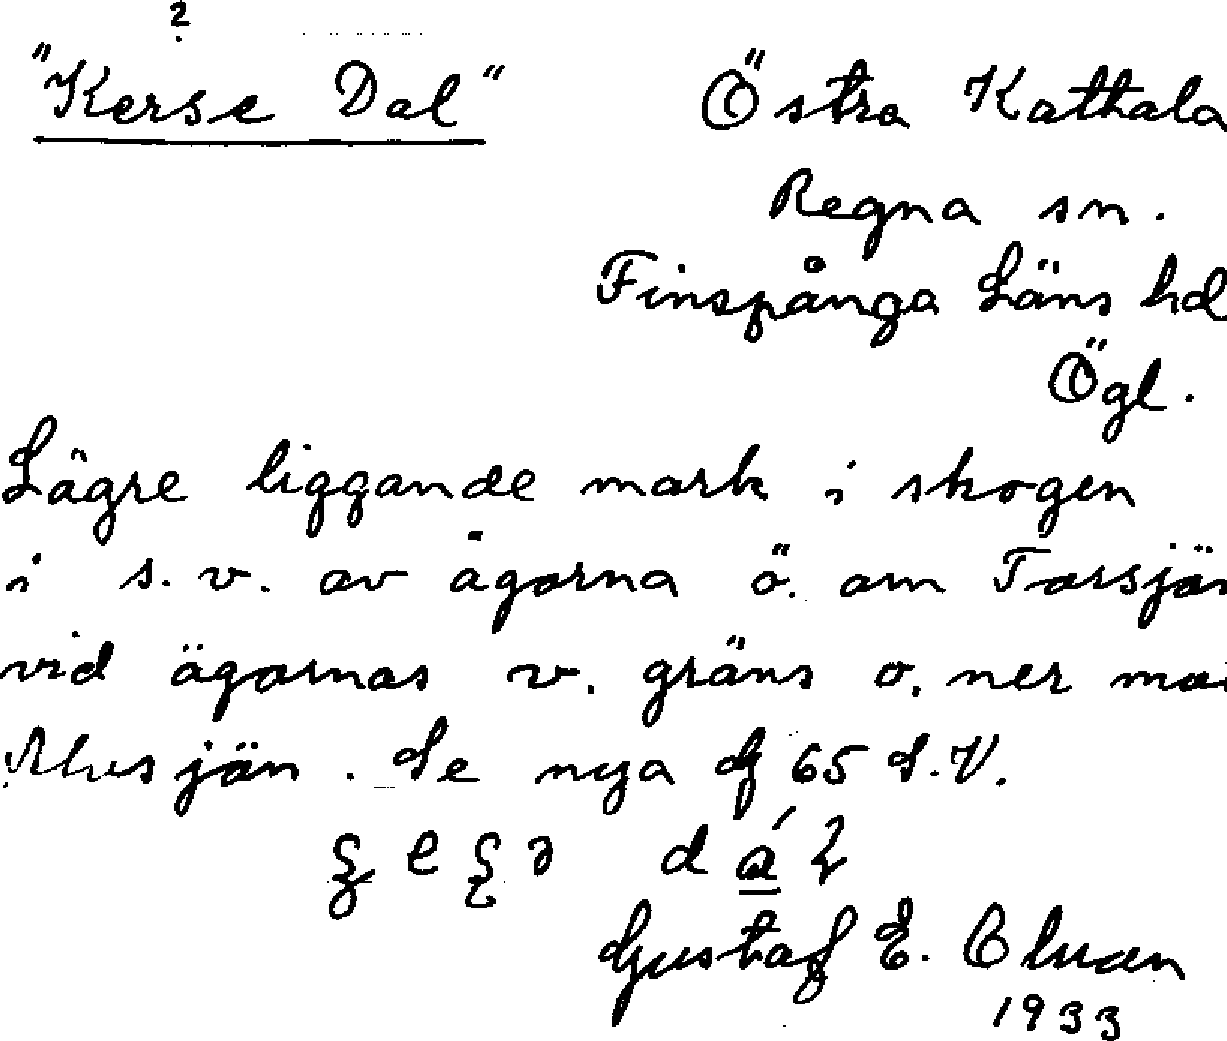 ?
"Kerse Dal" Östra Kathala
Regna sn.
Finspånga Läns hd
Ögl.
Lägre liggande mark i skogen
i s.v. av ägorna ö. om Torsjön
vid ägornas v. gräns o. ner mot
se nya 65 S.V.
Gustaf E.
1933